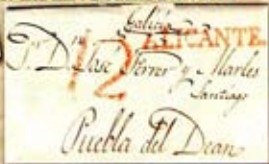 Galicia
ALICANTE.
Sr. Dn. Jose Ferrer y Marles
12
Santiago
Puebla del Dean